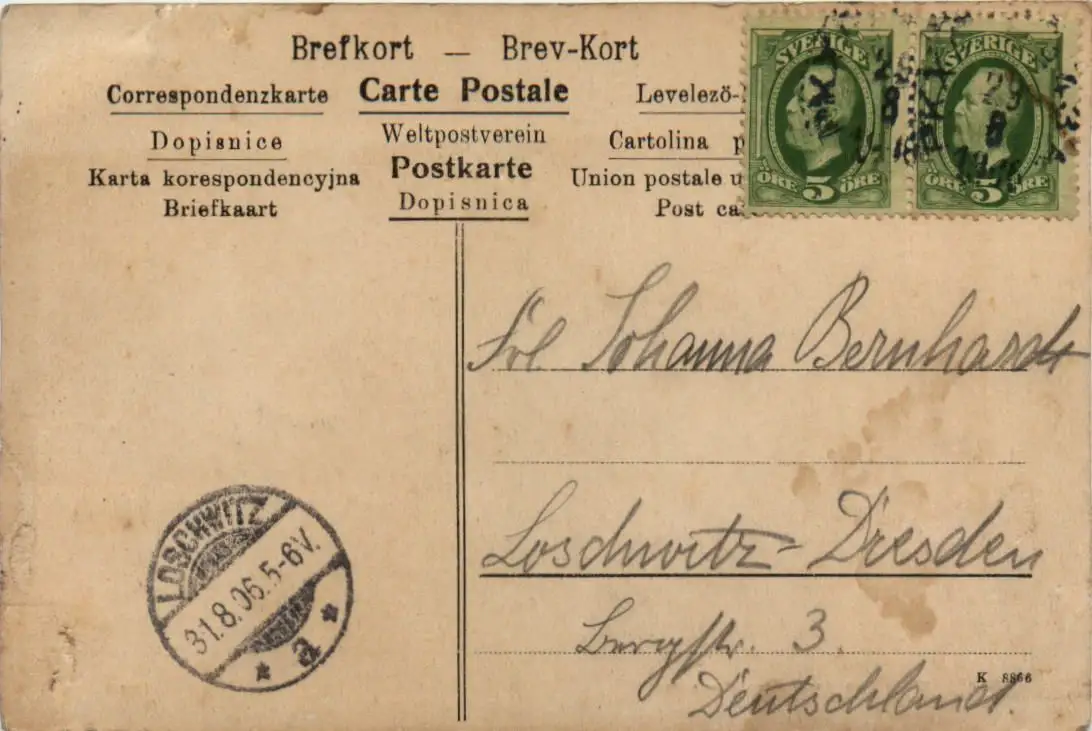 Brefkort — Brev-Kort
Correspondenzkarte Carte Postale Levelező-
Dopisnice Weltpostverein Cartolina p
Karta korespondencyjna Postkarte Union postale u
Briefkaart Dopisnica Post ca
SVERIGE SVERIGE
29 29
8 8
ÖRE 5 ÖRE ÖRE 5 ÖRE
Frl Johanna Bernhardt
Loschwitz-Dresden
Bergstr. 3.
Deutschland.
K 8866
LOSCHWITZ
31.8.06.5-6V.
* a *